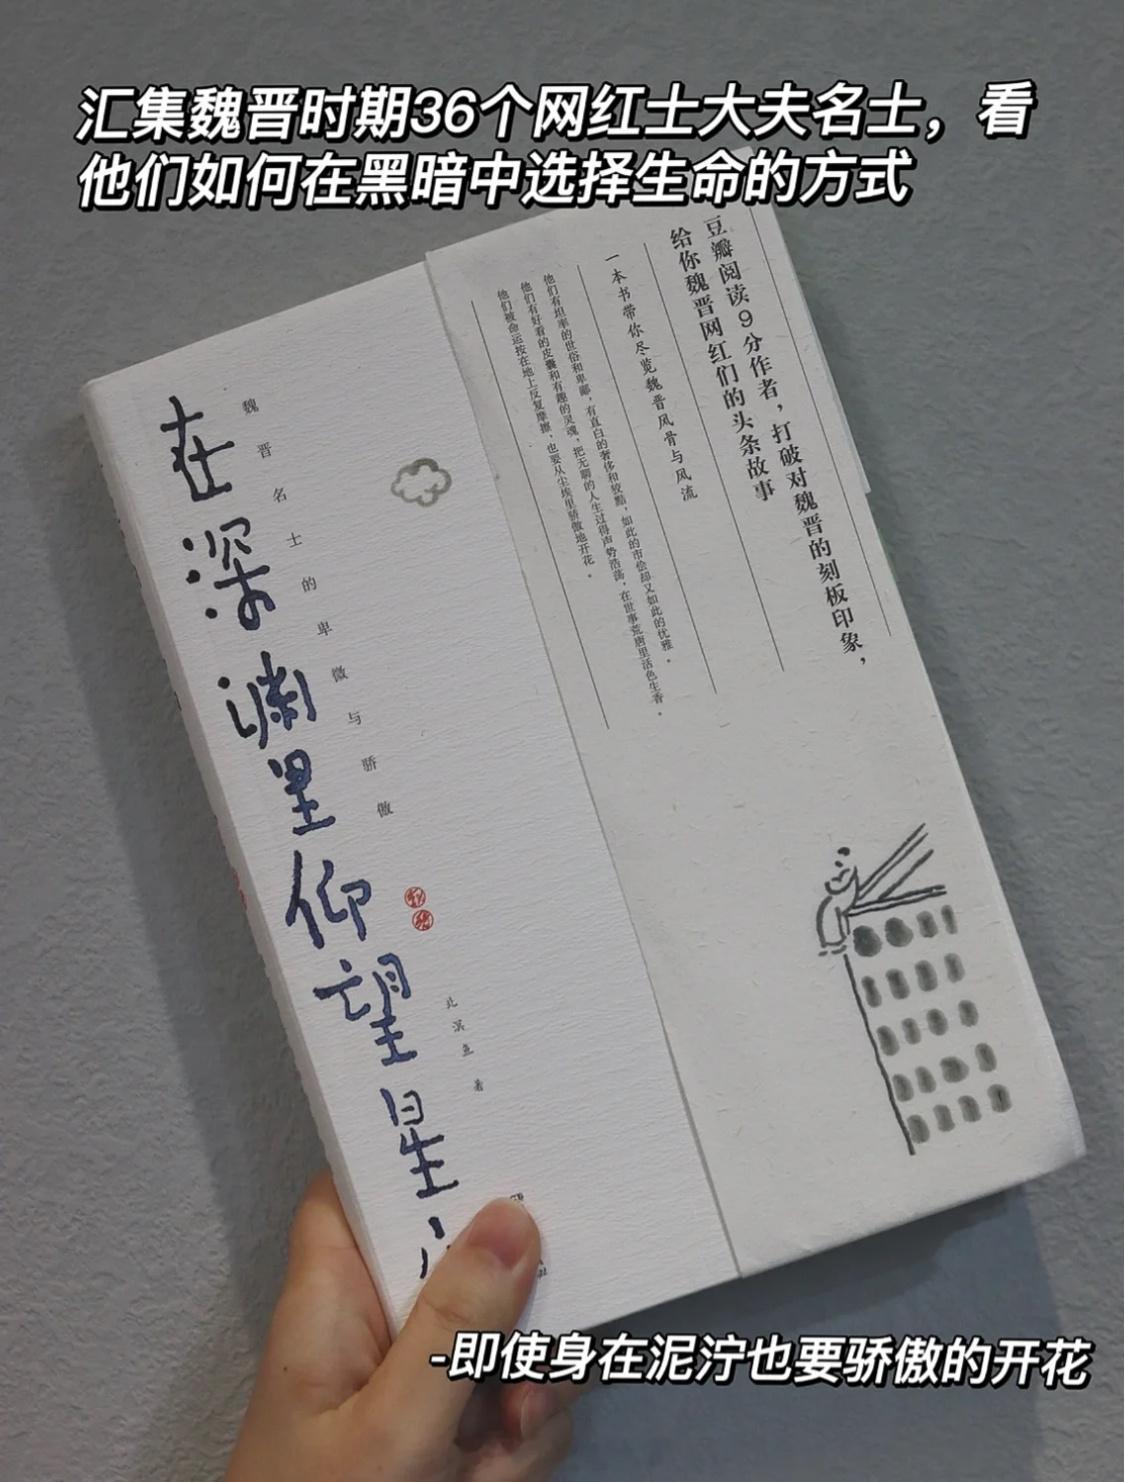 汇集魏晋时期36个网红士大夫名士，看
他们如何在黑暗中选择生命的方式
豆瓣阅读9分作者，打破对魏晋的刻板印象，
给你魏晋网红们的头条故事
一本书带你尽览魏晋风骨与风流
他们有坦率的世俗和卑鄙，有直白的奢侈和狡黠，如此的市侩却又如此的优雅。
他们有好看的皮囊和有趣的灵魂，把无羁的人生过得声势浩荡，在世事荒唐里活色生香。
他们被命运按在地上反复摩擦，也要从尘埃里骄傲地开花。
魏晋名士的卑微与骄傲
在深渊里仰望星
北溟鱼 著
-即使身在泥泞也要骄傲的开花